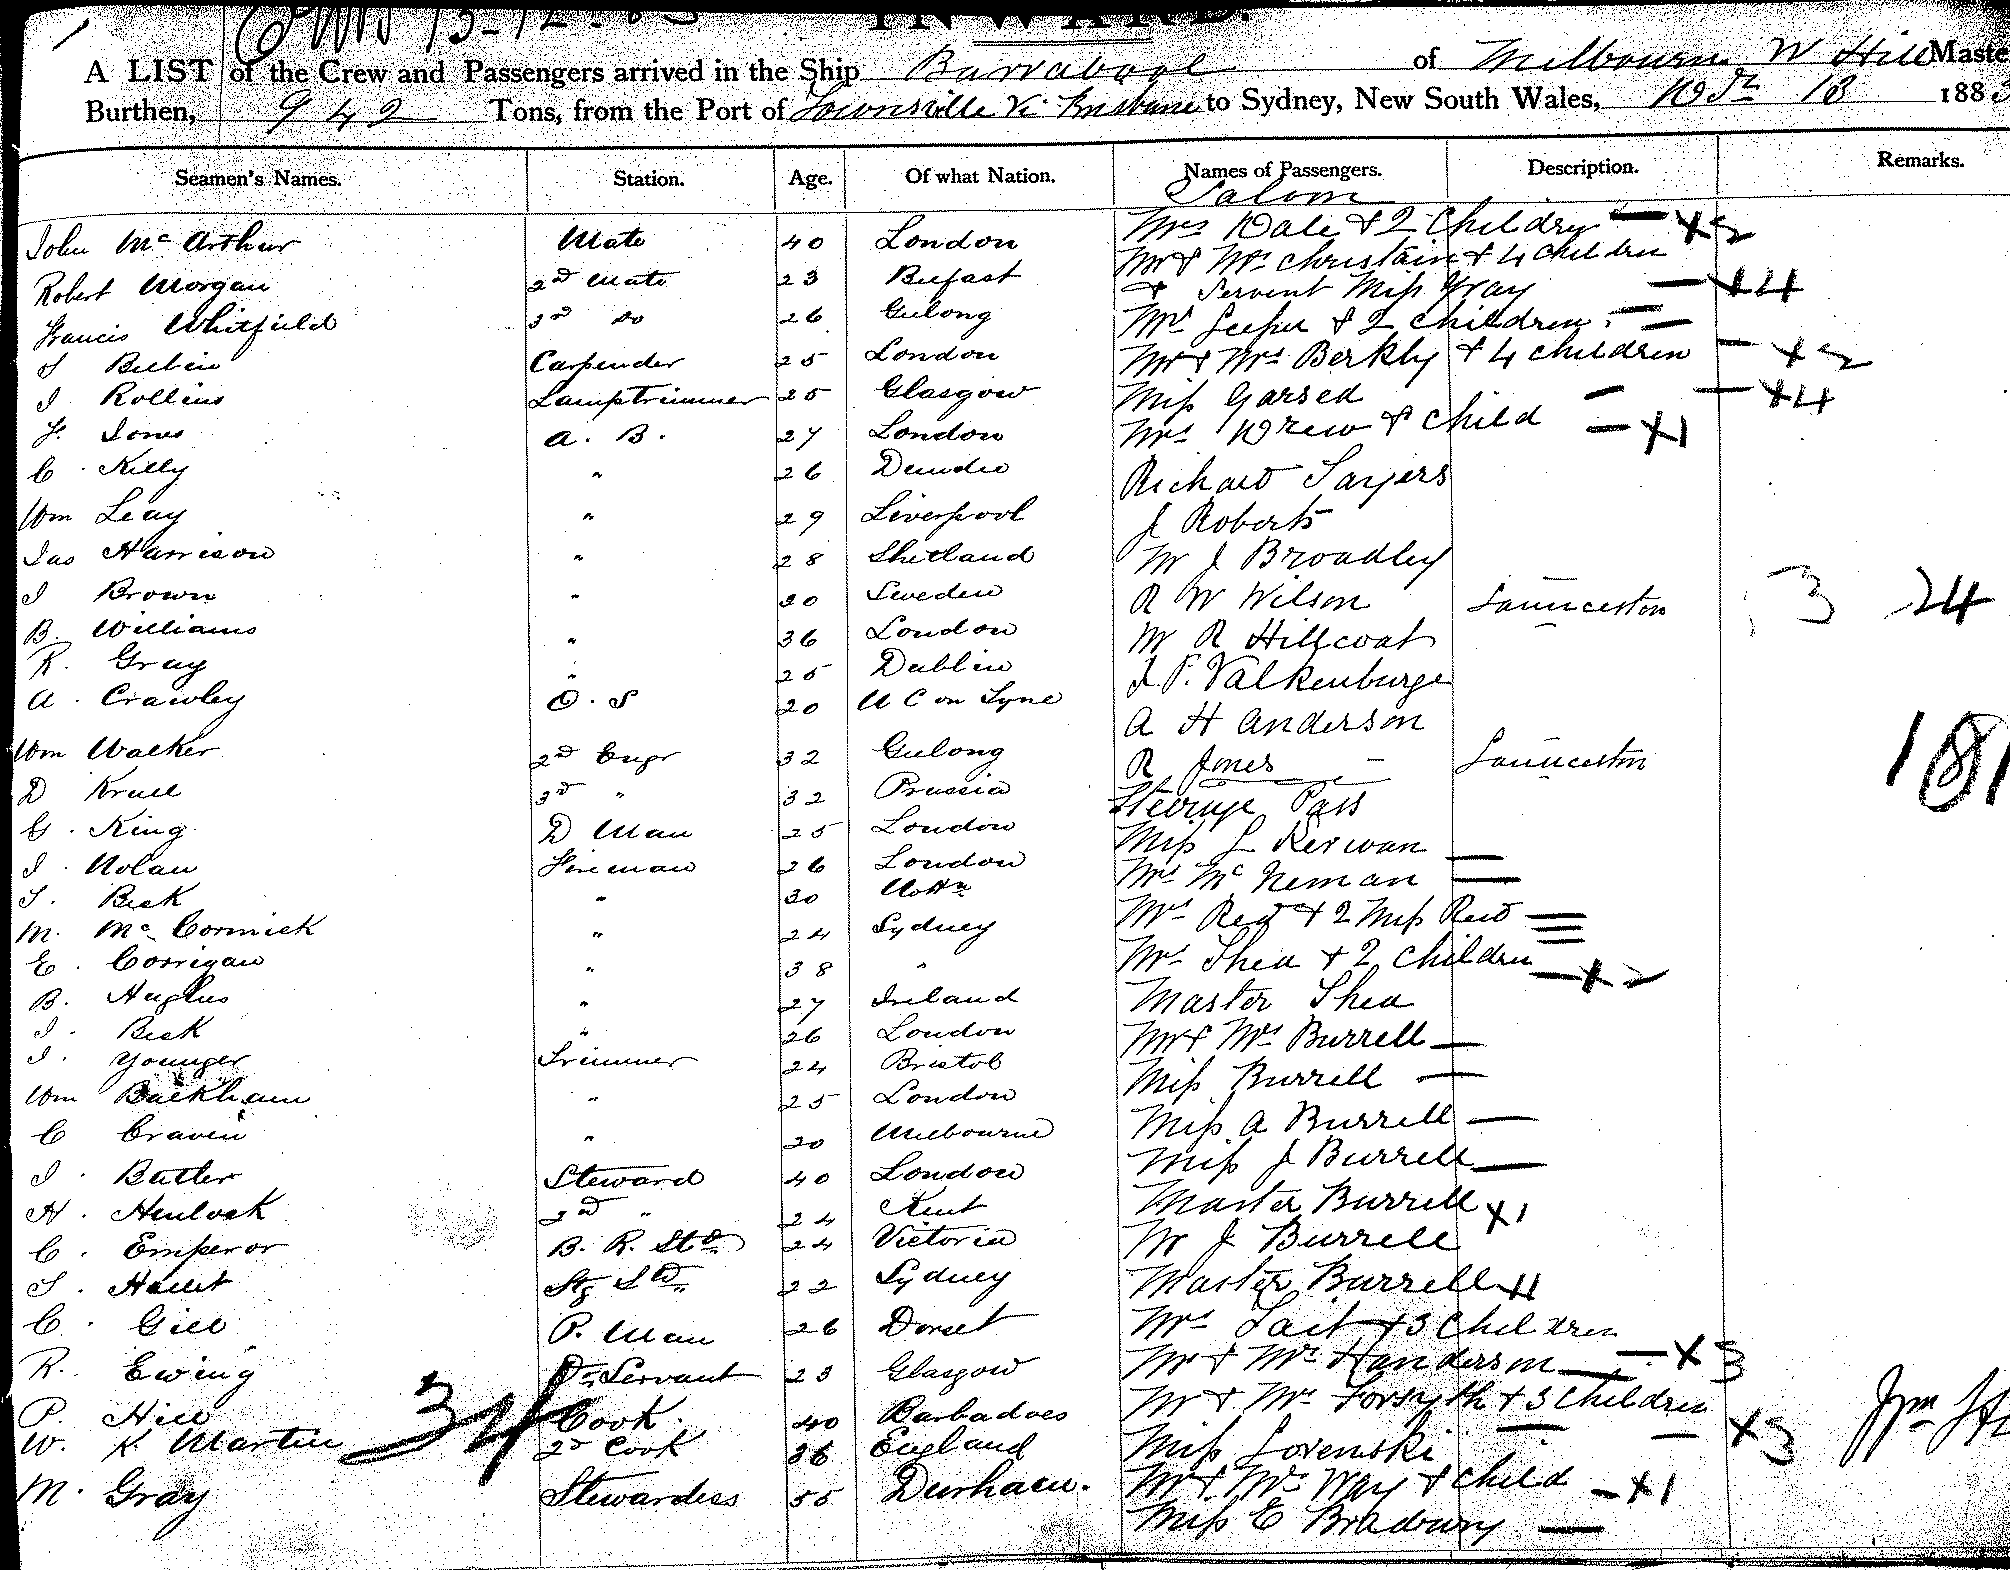 INWARD.
A LIST of the Crew and Passengers arrived in the Ship Barrabool of Melbourne W Hill Maste
Burthen, 942 Tons, from the Port of Townsville Via Brisbane to Sydney, New South Wales, 13 188
Seamen's Names. Station. Age. Of what Nation. Names of Passengers. Description. Remarks.
Saloon
John Mc Arthur Mate 40 London Mrs Dale & 2 Children — X2
Robert Morgan 2nd Mate 23 Belfast Mr & Mrs Christain & 4 children
Francis Whitfield 3rd do 26 Geelong & Servent Miss Gray — X4
Mrs & 2 children
J Carpender 25 London Mr & Mrs Berkly & 4 children — X2
J Rollins Lamptrimmer 25 Glasgow Miss Garsed — X4
J. Jones A. B. 27 London Mrs Drew & child — X1
C. Kelly " 26 Dundee Richard Sayers
Wm Leay " 29 Liverpool J Roberts
Jas Harrison " 28 Shetland Mr J Broadley
J Brown " 30 Sweden R W Wilson Launceston 3 24
B. Williams " 36 London Mr R Hillcoat
R. Gray " 25 Dublin J P. Valkenburge
A. Crawley O. S 20 N C on Tyne A H Anderson
Wm Walker 2nd Engr 32 Geelong R Jones Launceston 181
D Krull 3rd " 32 Prussia Steerage Pass
G. King D Man 25 London Miss L Kerwan
J. Nolan Fireman 26 London Mrs Mc Neman
J. Beck " 30 Mrs Reid & 2 Miss Reid
M. Mc Cormick " 24 Sydney Mrs Shea & 2 children — X2
E. Corrigan " 38 " Master Shea
B. Hughes " 27 Ireland Mr & Mrs Burrell
J. Beck " 26 London Miss Burrell
J. Younger Trimmer 24 Bristol Miss A Burrell
Wm Backham " 25 London Miss J Burrell
C Craven " 20 Melbourne Master Burrell X1
J. Butler Steward 40 London Mr J Burrell
H. Henlock 2nd " 24 Kent Master Burrell X1
C. Emperor B. R. Std 24 Victoria Mrs Tait & 3 Children — X3
J. Stg Std 22 Sydney Mr & Mrs Handerson
C. Gill P. Man 26 Dorset Mr & Mrs Forsyth & 3 Children X3
R. Ewing Servant 23 Glasgow Miss
P. Hill Cook 40 Barbadoes Mr & Mrs Way & child — X1
W. K. Martin 2d Cook 36 England Miss E Bradbury
M. Gray Stewardess 55 Durham.
34